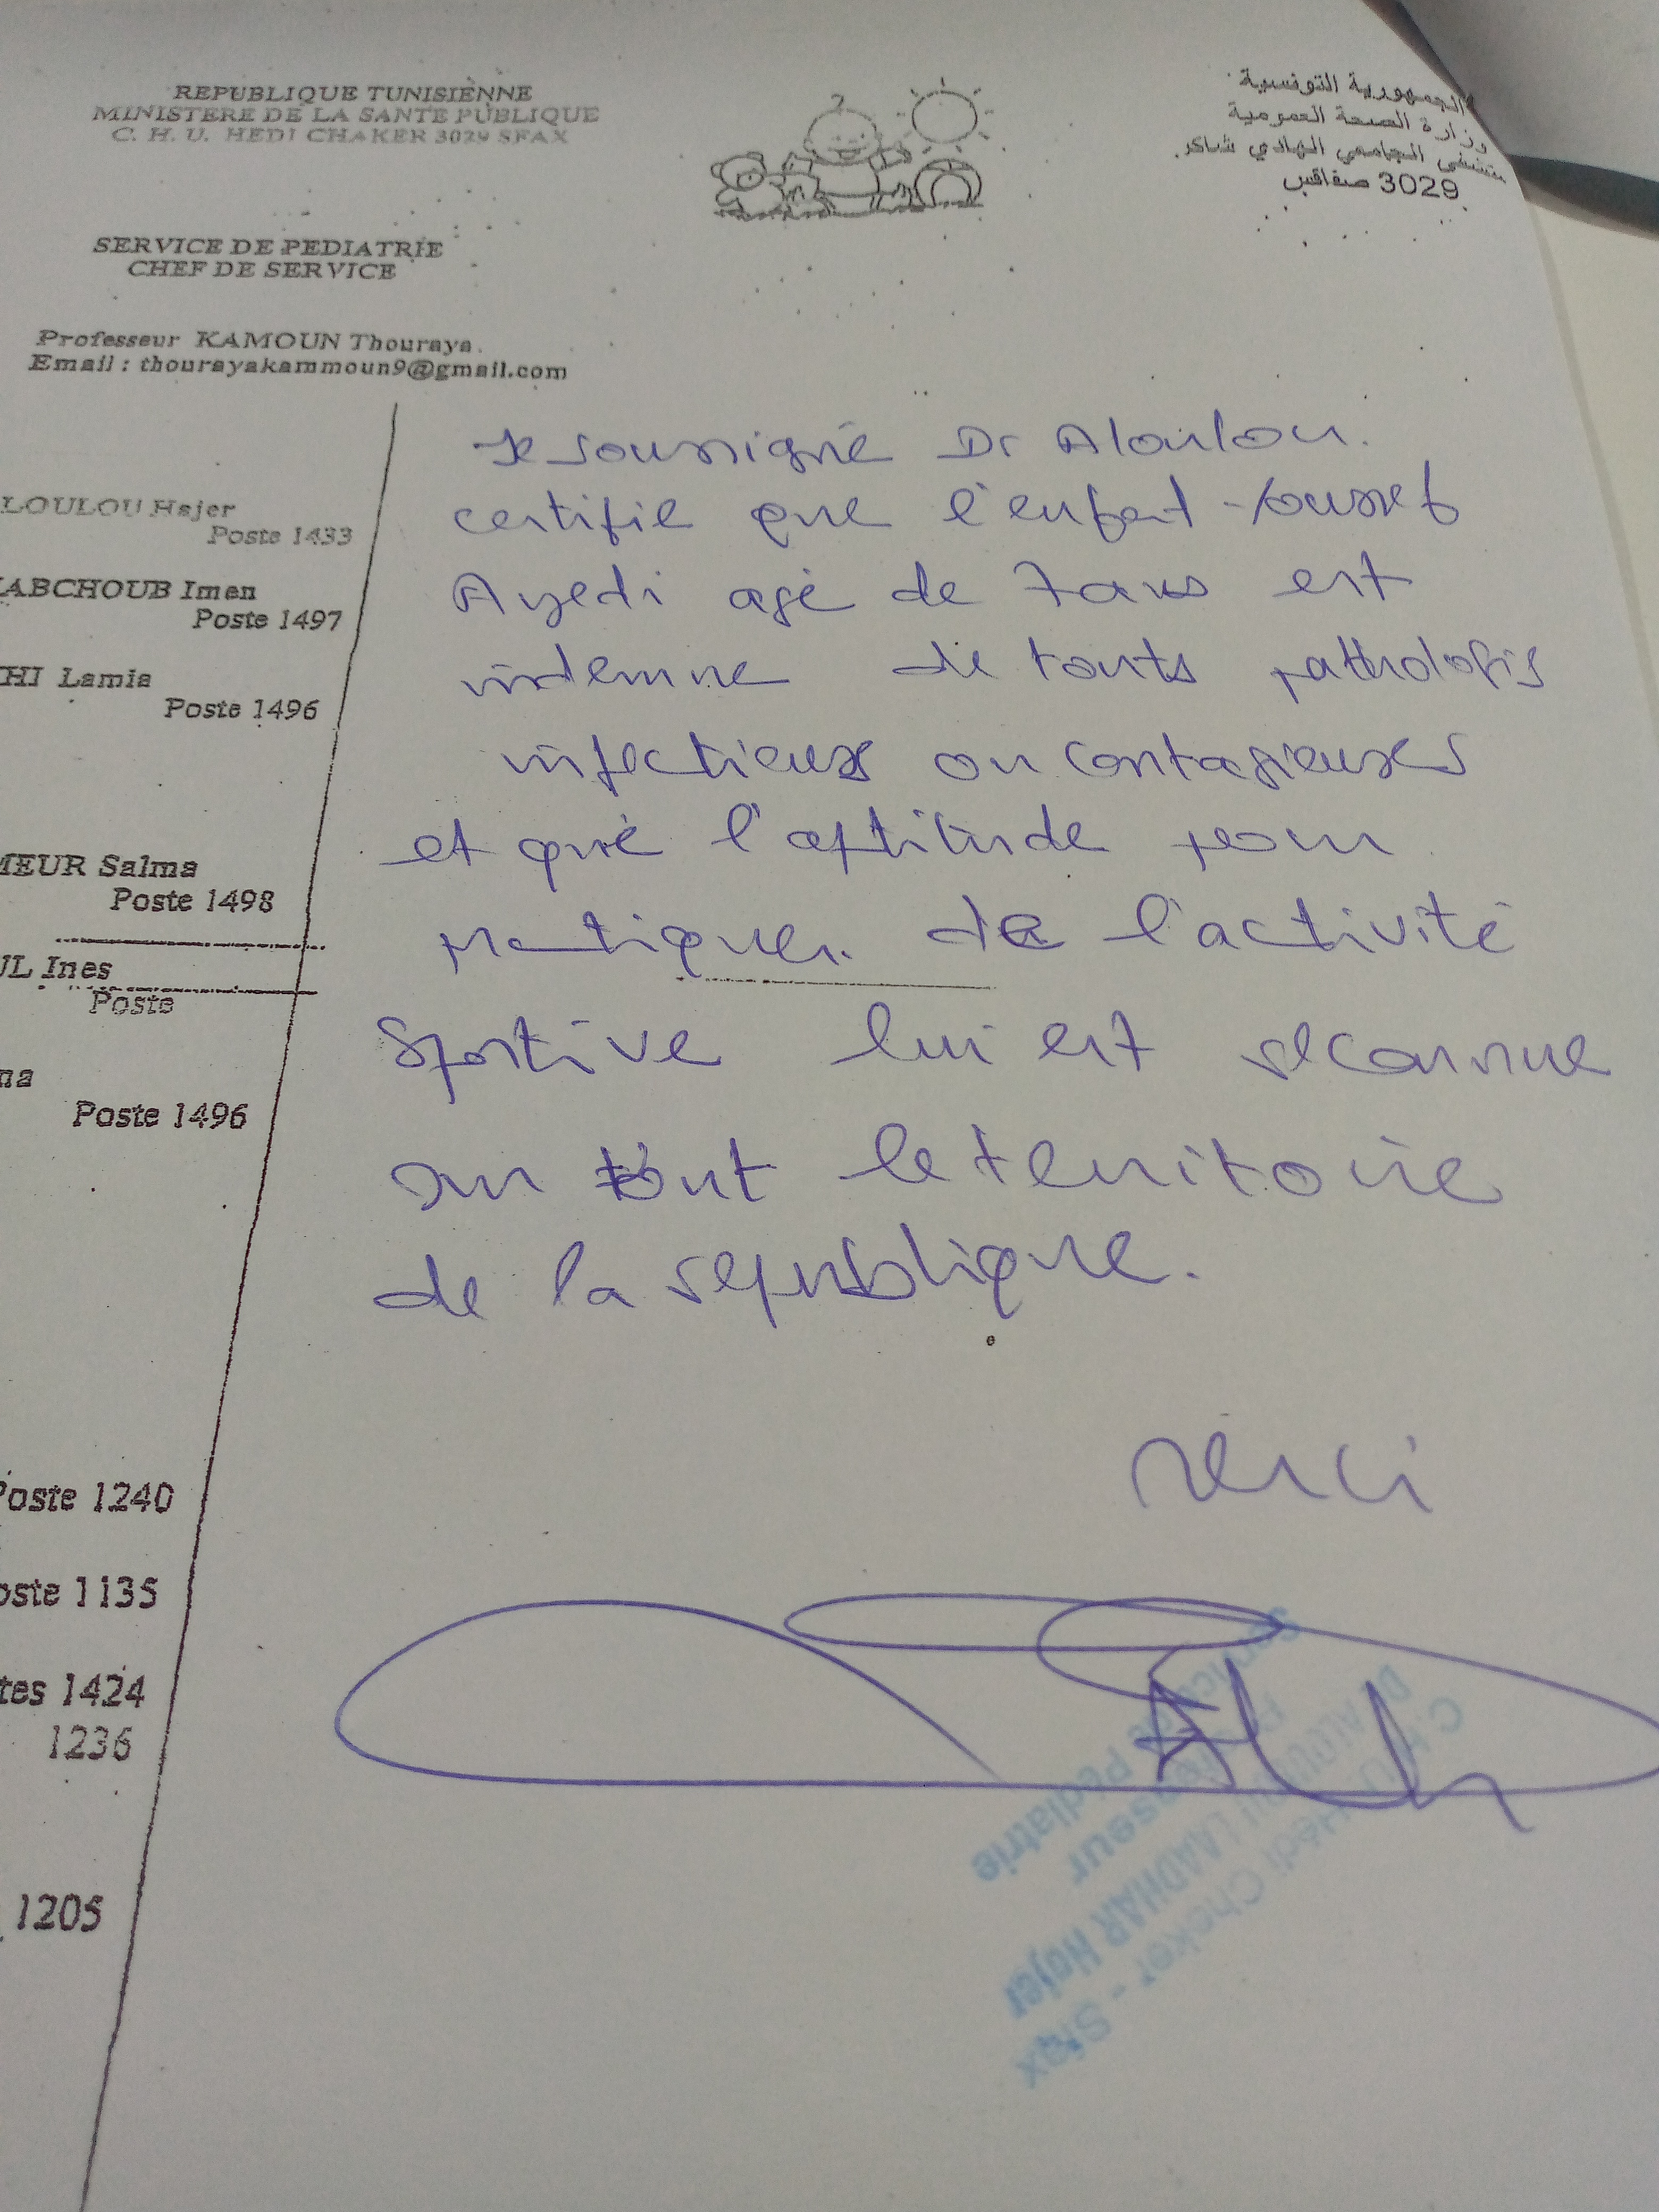 REPUBLIQUE TUNISIENNE
MINISTERE DE LA SANTE PUBLIQUE
C. H. U. HEDI CHAKER 3029 SFAX
الجمهورية التونسية
وزارة الصحة العمومية
الجامعي الهادي شاكر
3029 صفاقس
SERVICE DE PEDIATRIE
CHEF DE SERVICE
Professeur KAMOUN Thouraya.
Email : thourayakammoun9@gmail.com
LOULOU Hajer
Poste 1433
ABCHOUB Imen
Poste 1497
HI Lamia
Poste 1496
MEUR Salma
Poste 1498
UL Ines
Poste
na
Poste 1496
Poste 1240
oste 1135
tes 1424
1236
1205
Je soussigné Dr Aloulou.
certifie que l'enfant Youssef
Ayedi agé de 7 ans est
indemne de touts pathologis
infectieuses ou contagieuses
et que l'aptitude pour
pratiquer de l'activité
Sportive lui est reconnue
sur tout le territoire
de la republique.
Merci
C.H.U Hédi Cheker - Sfax
Dr ALOULOU LAADHAR Hajer
Professeur
Service Pédiatrie